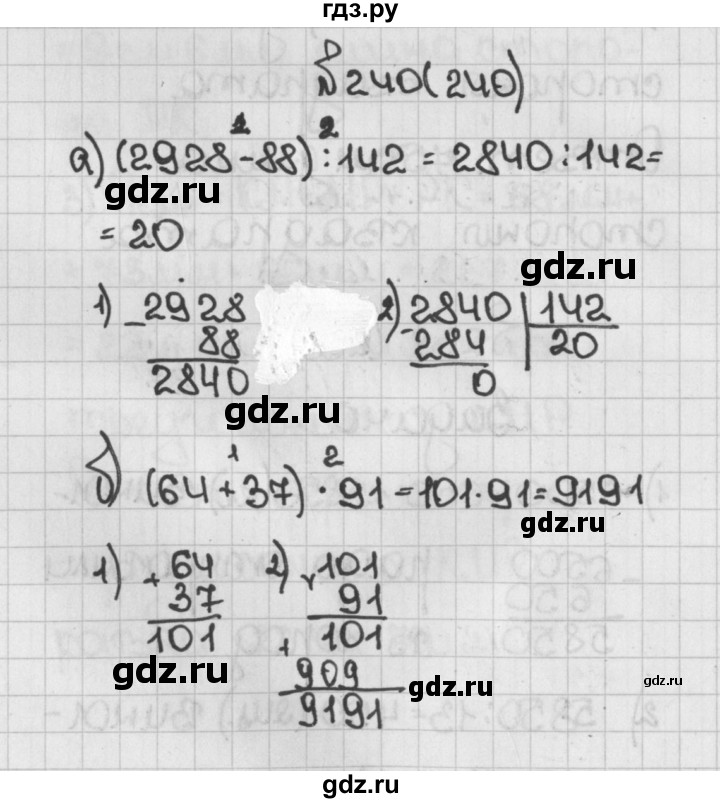 гдз.ру
№240(240)
1 2
а) (2928-88):142=2840:142=
gdz.ru
=20
gdz.ru
1) -2928
88
2840
2) -2840 | 142
284 | 20
0
gdz.ru
1 2
б) (64+37)·91=101·91=9191
gdz.ru
1) +64
37
101
2) ×101
91
+101
909
9191
gdz.ru
gdz.ru
gdz.ru
gdz.ru